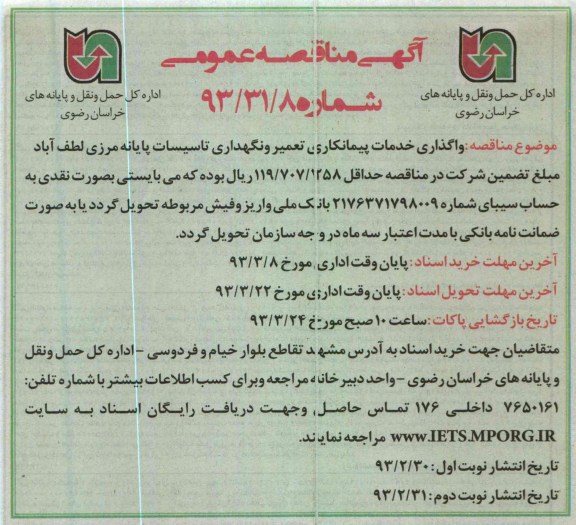 آگهی مناقصه عمومی
شماره ۹۳/۳۱/۸
اداره کل حمل ونقل و پایانه های
خراسان رضوی
اداره کل حمل ونقل و پایانه های
خراسان رضوی
موضوع مناقصه: واگذاری خدمات پیمانکاری تعمیر ونگهداری تاسیسات پایانه مرزی لطف آباد
مبلغ تضمین شرکت در مناقصه حداقل ۱۱۹/۷۰۷/۱۲۵۸ ریال بوده که می بایستی بصورت نقدی به
حساب سیبای شماره ۲۱۷۶۳۷۱۷۹۸۰۰۹ بانک ملی واریز وفیش مربوطه تحویل گردد یا به صورت
ضمانت نامه بانکی با مدت اعتبار سه ماه در وجه سازمان تحویل گردد.
آخرین مهلت خرید اسناد: پایان وقت اداری مورخ ۹۳/۳/۸
آخرین مهلت تحویل اسناد: پایان وقت اداری مورخ ۹۳/۳/۲۲
تاریخ بازگشایی پاکات: ساعت ۱۰ صبح مورخ ۹۳/۳/۲۴
متقاضیان جهت خرید اسناد به آدرس مشهد تقاطع بلوار خیام و فردوسی – اداره کل حمل ونقل
و پایانه های خراسان رضوی – واحد دبیرخانه مراجعه وبرای کسب اطلاعات بیشتر با شماره تلفن:
۷۶۵۰۱۶۱ داخلی ۱۷۶ تماس حاصل وجهت دریافت رایگان اسناد به سایت
WWW.IETS.MPORG.IR مراجعه نمایند.
تاریخ انتشار نوبت اول: ۹۳/۲/۳۰
تاریخ انتشار نوبت دوم: ۹۳/۲/۳۱